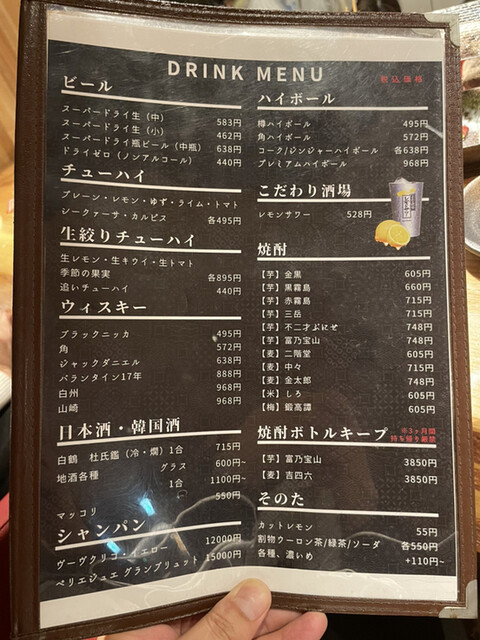 DRINK MENU
税込価格
ビール
スーパードライ生（中） 583円
スーパードライ生（小） 462円
スーパードライ瓶ビール（中瓶） 638円
ドライゼロ（ノンアルコール） 440円
チューハイ
プレーン・レモン・ゆず・ライム・トマト
シークァーサ・カルピス 各495円
生絞りチューハイ
生レモン・生キウイ・生トマト
季節の果実 各895円
追いチューハイ 440円
ウィスキー
ブラックニッカ 495円
角 572円
ジャックダニエル 638円
バランタイン17年 888円
白州 968円
山崎 968円
日本酒・韓国酒
白鶴 杜氏鑑（冷・燗）1合 715円
地酒各種 グラス 600円~
1合 1100円~
マッコリ 550円
シャンパン
ヴーヴクリコ・イエロー 12000円
ペリエジュエ グランブリュット 15000円
ハイボール
樽ハイボール 495円
角ハイボール 572円
コーク/ジンジャーハイボール 各638円
プレミアムハイボール 968円
こだわり酒場
レモンサワー 528円
焼酎
【芋】金黒 605円
【芋】黒霧島 660円
【芋】赤霧島 715円
【芋】三岳 715円
【芋】不二才ぶにせ 748円
【芋】富乃宝山 748円
【麦】二階堂 605円
【麦】中々 715円
【麦】金太郎 748円
【米】しろ 605円
【梅】鍛高譚 605円
焼酎ボトルキープ
※3ヶ月間
持ち帰り厳禁
【芋】富乃宝山 3850円
【麦】吉四六 3850円
そのた
カットレモン 55円
割物ウーロン茶/緑茶/ソーダ 各550円
各種、濃いめ +110円~